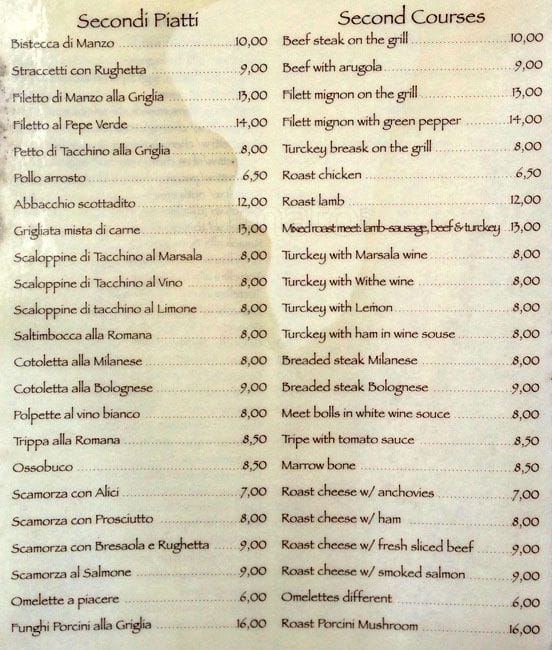 Secondi Piatti
Bistecca di Manzo 10,00
Straccetti con Rughetta 9,00
Filetto di Manzo alla Griglia 13,00
Filetto al Pepe Verde 14,00
Petto di Tacchino alla Griglia 8,00
Pollo arrosto 6,50
Abbacchio scottadito 12,00
Grigliata mista di carne 13,00
Scaloppine di Tacchino al Marsala 8,00
Scaloppine di Tacchino al Vino 8,00
Scaloppine di tacchino al Limone 8,00
Saltimbocca alla Romana 8,00
Cotoletta alla Milanese 8,00
Cotoletta alla Bolognese 9,00
Polpette al vino bianco 8,00
Trippa alla Romana 8,50
Ossobuco 8,50
Scamorza con Alici 7,00
Scamorza con Prosciutto 8,00
Scamorza con Bresaola e Rughetta 9,00
Scamorza al Salmone 9,00
Omelette a piacere 6,00
Funghi Porcini alla Griglia 16,00
Second Courses
Beef steak on the grill 10,00
Beef with arugola 9,00
Filett mignon on the grill 13,00
Filett mignon with green pepper 14,00
Turckey breask on the grill 8,00
Roast chicken 6,50
Roast lamb 12,00
Mixed roast meet: lamb-sausage, beef & turckey 13,00
Turckey with Marsala wine 8,00
Turckey with Withe wine 8,00
Turckey with Lemon 8,00
Turckey with ham in wine souse 8,00
Breaded steak Milanese 8,00
Breaded steak Bolognese 9,00
Meet bolls in white wine souce 8,00
Tripe with tomato sauce 8,50
Marrow bone 8,50
Roast cheese w/ anchovies 7,00
Roast cheese w/ ham 8,00
Roast cheese w/ fresh sliced beef 9,00
Roast cheese w/ smoked salmon 9,00
Omelettes different 6,00
Roast Porcini Mushroom 16,00